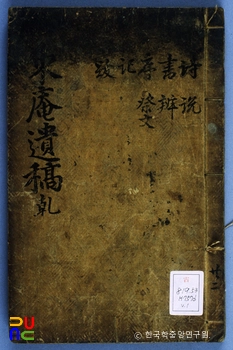 詩 說
書 辨
序 祭文
記
跋
冰庵遺稿 乾
共二
ⓒ 한국학중앙연구원